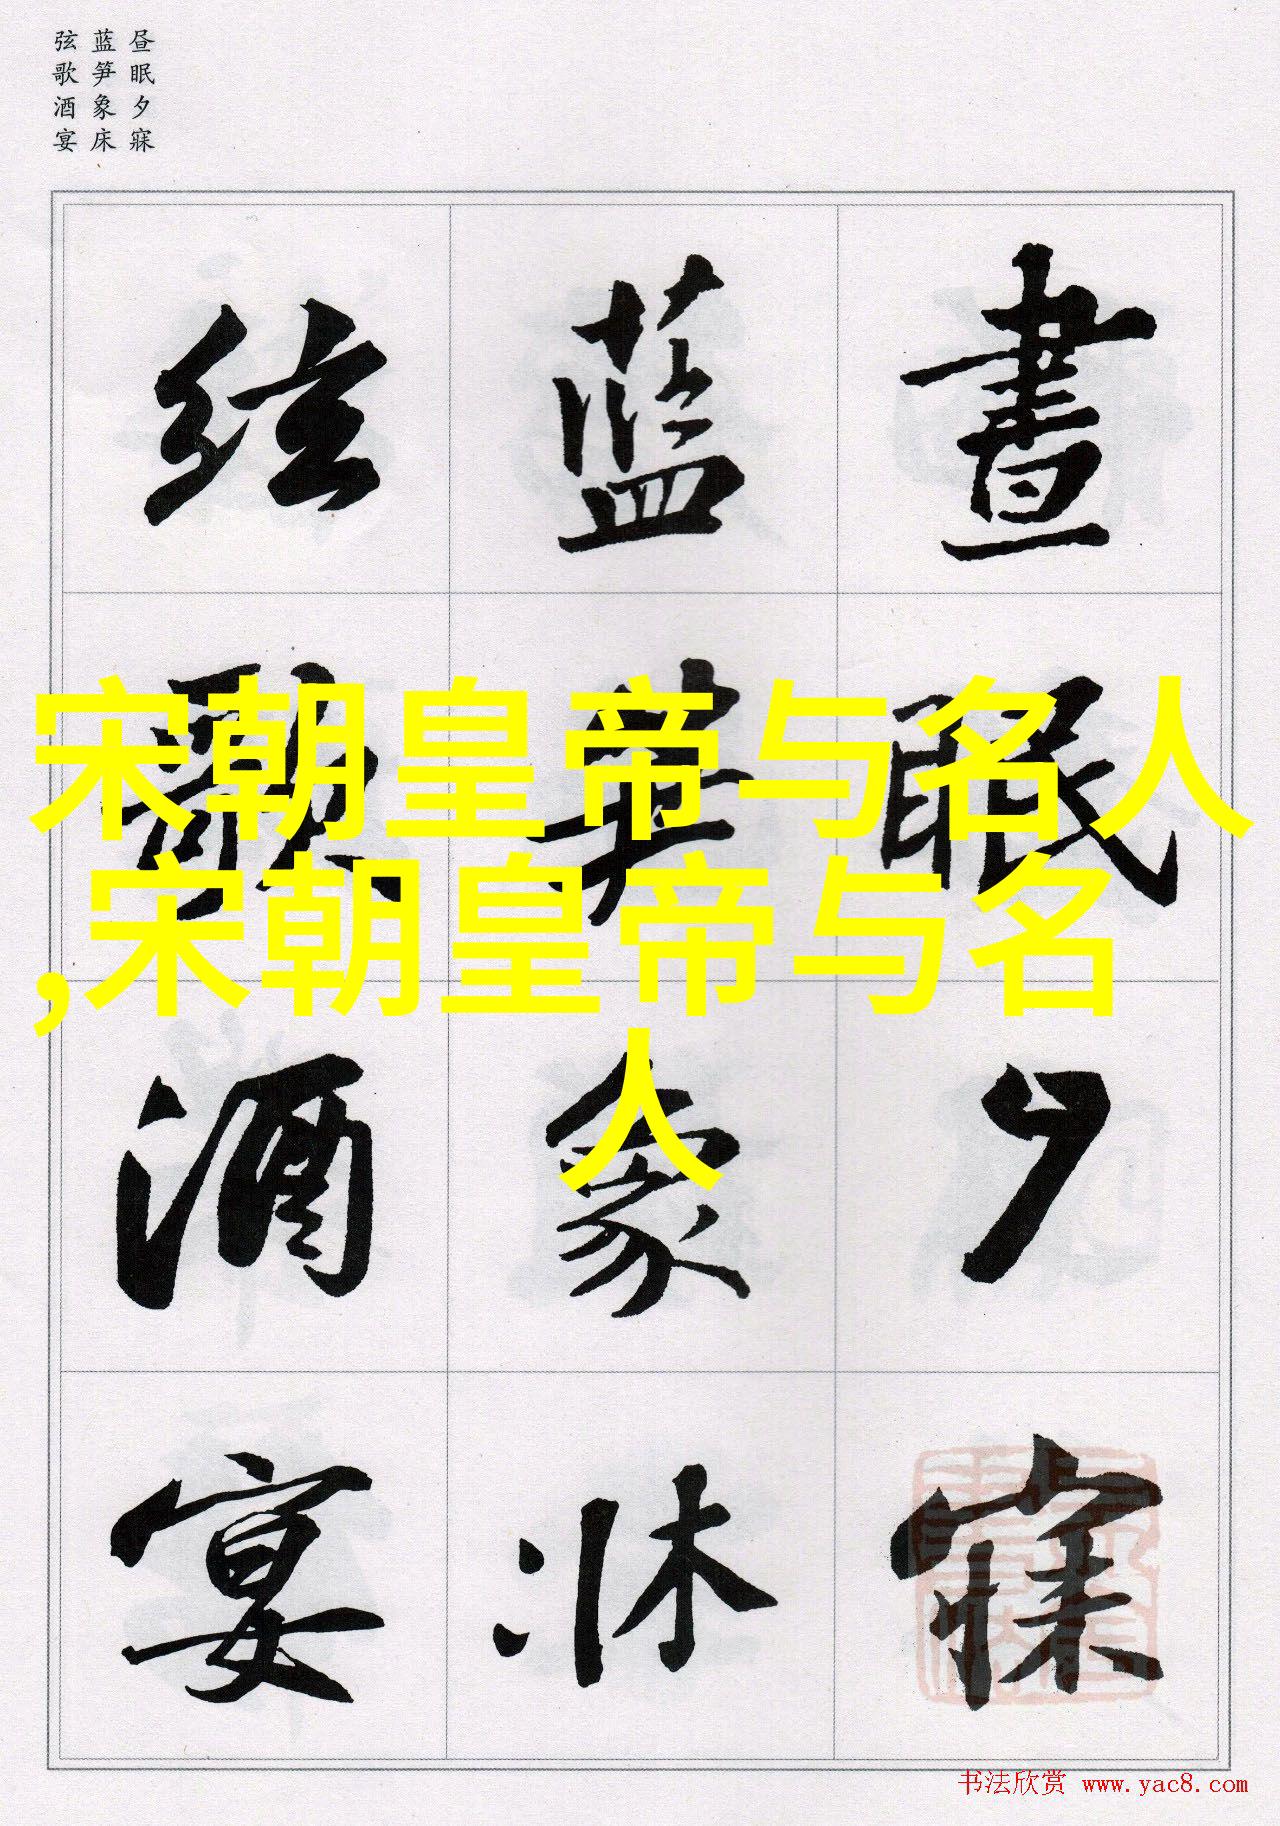 昼眠夕寐
蓝笋象床
弦歌酒宴
晝眠夕寐
藍笋象牀
絃歌酒宴
宋朝皇帝与名人
,宋朝皇帝与名
人
书法欣赏 www.yac8.com